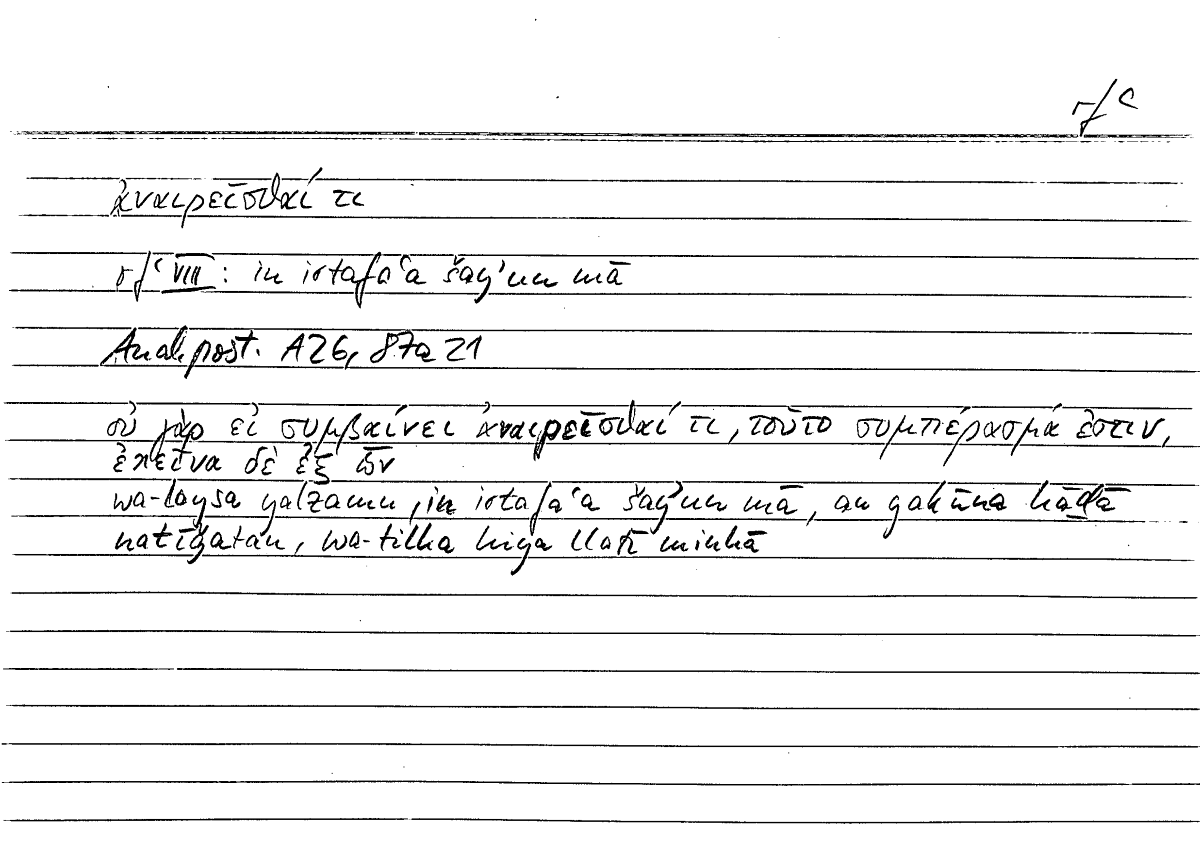 rfʿ
ἀναιρεῖσθαί τι
rfʿ VIII : in irtafaʿa šayʾun mā
Anal. post. A26, 87a21
οὐ γὰρ εἰ συμβαίνει ἀναιρεῖσθαί τι, τοῦτο συμπέρασμά ἐστιν,
ἐκεῖνα δὲ ἐξ ὧν
wa-laysa yalzamu, in irtafaʿa šayʾun mā, an yakūna hāḏā
natīǧatan, wa-tilka hiya llatī minhā